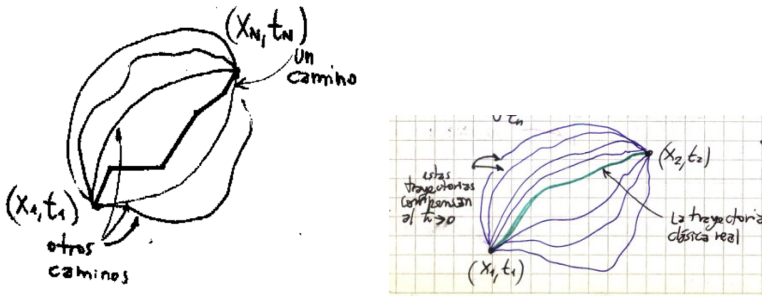 (X_N, t_N)
un
camino
(X_1, t_1)
otros
caminos
t_n
estas
trayectorias
compensan
al ħ→0
(X_2, t_2)
La trayectoria
clásica real
(X_1, t_1)